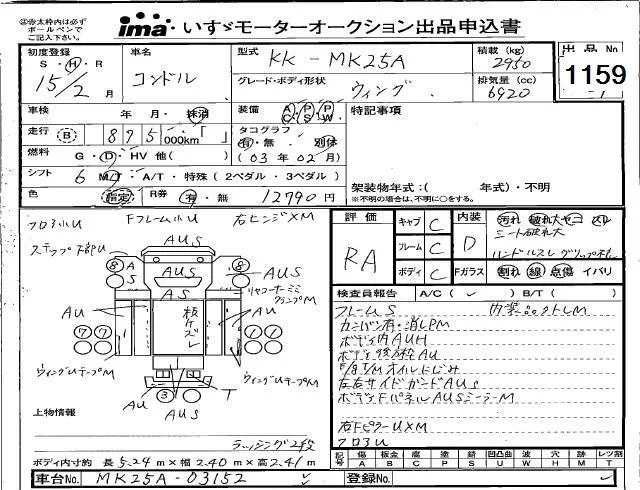 ㊟赤太枠内は必ず
ボールペンで
ご記入下さい。
ima・いすゞモーターオークション出品申込書
初度登録 車名 型式 KK - MK25A 積載 (kg) 2950 出品 No
S・H・R 15/2 月 コンドル グレード・ボディ形状 ウィング 排気量 (cc) 6920 1159
車検 年 月・抹消 装備 A/C P/S P/W 特記事項
走行 B 895000km「 」 タコグラフ 有・無 別体
燃料 G・D・HV 他( ) (03年02月)
シフト 6 MT・A/T・特殊(2ペダル・3ペダル)
架装物年式:( 年式)・不明
色 指定 R券 有・無 12790 円 ※不明の場合は、不明に○をする。
フロア小U Fフレーム小U 右ヒンジXM
ステップ下部U AUS
8 A S AUS 8 AUS
AS リヤコーナーミミ クランプM
AU 板ケズレ AU
7 7 1 1
ウィングUテープM ウィングUテープM
AU 3 T
AUS
上物情報
ラッシング2段
ボディ内寸約 長 5.24 m×幅 2.40 m×高 2.41 m
車台No. MK25A-03152 登録No.
評価 RA キャブ C 内装 D 汚れ 破れ大 ヤニ スレ
シート破れ大
フレーム C ハンドルスレ
ボディ C Fガラス 割れ 線 点傷 イバリ
検査員報告 A/C( ) B/T( )
フレームS
カンバン有・消しPM
ボディ内AUH
ボディ後方枠AU
E/g T/M オイルにじみ
左右サイドガードAUS
ボディFパネルAUSシーラーM
右FピラーUXM
フロアU
記号 傷 A 板金 B 腐 C 塗 P 錆 S 凹凸曲 U 波 W 穴 H 割 X 他 M レツ割 T